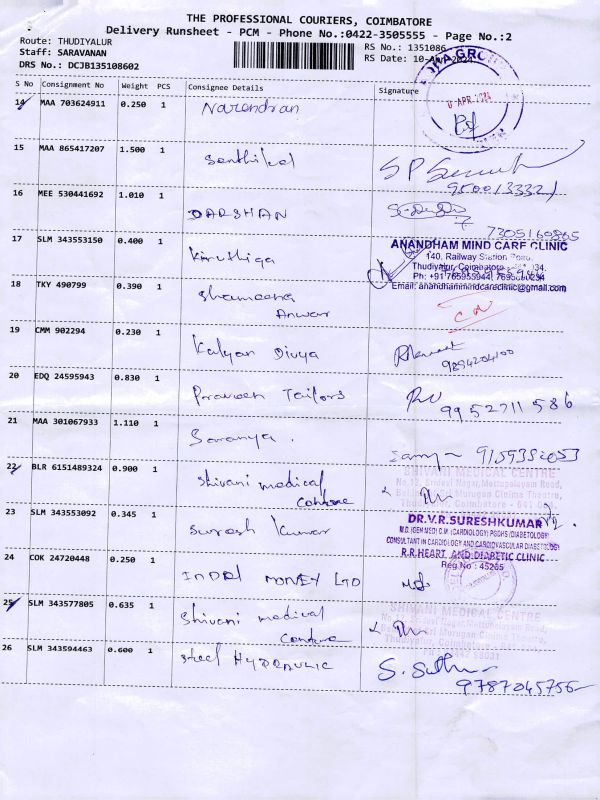 THE PROFESSIONAL COURIERS, COIMBATORE
Delivery Runsheet - PCM - Phone No.:0422-3505555 - Page No.:2
Route: THUDIYALUR
Staff: SARAVANAN
DRS No.: DCJB135108602
RS No.: 1351086
RS Date: 10-
S No Consignment No Weight PCS Consignee Details Signature
14 MAA 703624911 0.250 1 Narendran
APR
15 MAA 865417207 1.500 1 Senthilvel
16 MEE 530441692 1.010 1 DARSHAN
7305160865
17 SLM 343553150 0.400 1 Kiruthiga
ANANDHAM MIND CARE CLINIC
140, Railway Station Road,
Thudiyalur, Coimbatore
Email: anandhammindcareclinic@gmail.com
18 TKY 490799 0.390 1 Shameena
Anwar
19 CMM 902294 0.230 1 Kalyan Divya
9894204100
20 EDQ 24595943 0.830 1 Praveen Tailors
9952711586
21 MAA 301067933 1.110 1 Saranya.
SHIVANI MEDICAL CENTRE
22 BLR 6151489324 0.900 1 Shivani medical
Centre
23 SLM 343553092 0.345 1 Suresh Kumar
DR.V.R.SURESHKUMAR
CONSULTANT IN CARDIOLOGY AND CARDIOVASCULAR DIABETOLOGY
R.R.HEART AND DIABETIC CLINIC
Reg No : 45265
24 COK 24720448 0.250 1 INDEL MONEY LTD
25 SLM 343577805 0.635 1 Shivani medical
Centre
SHIVANI MEDICAL CENTRE
26 SLM 343594463 0.600 1 Steel HYDRAULIC
9787045756